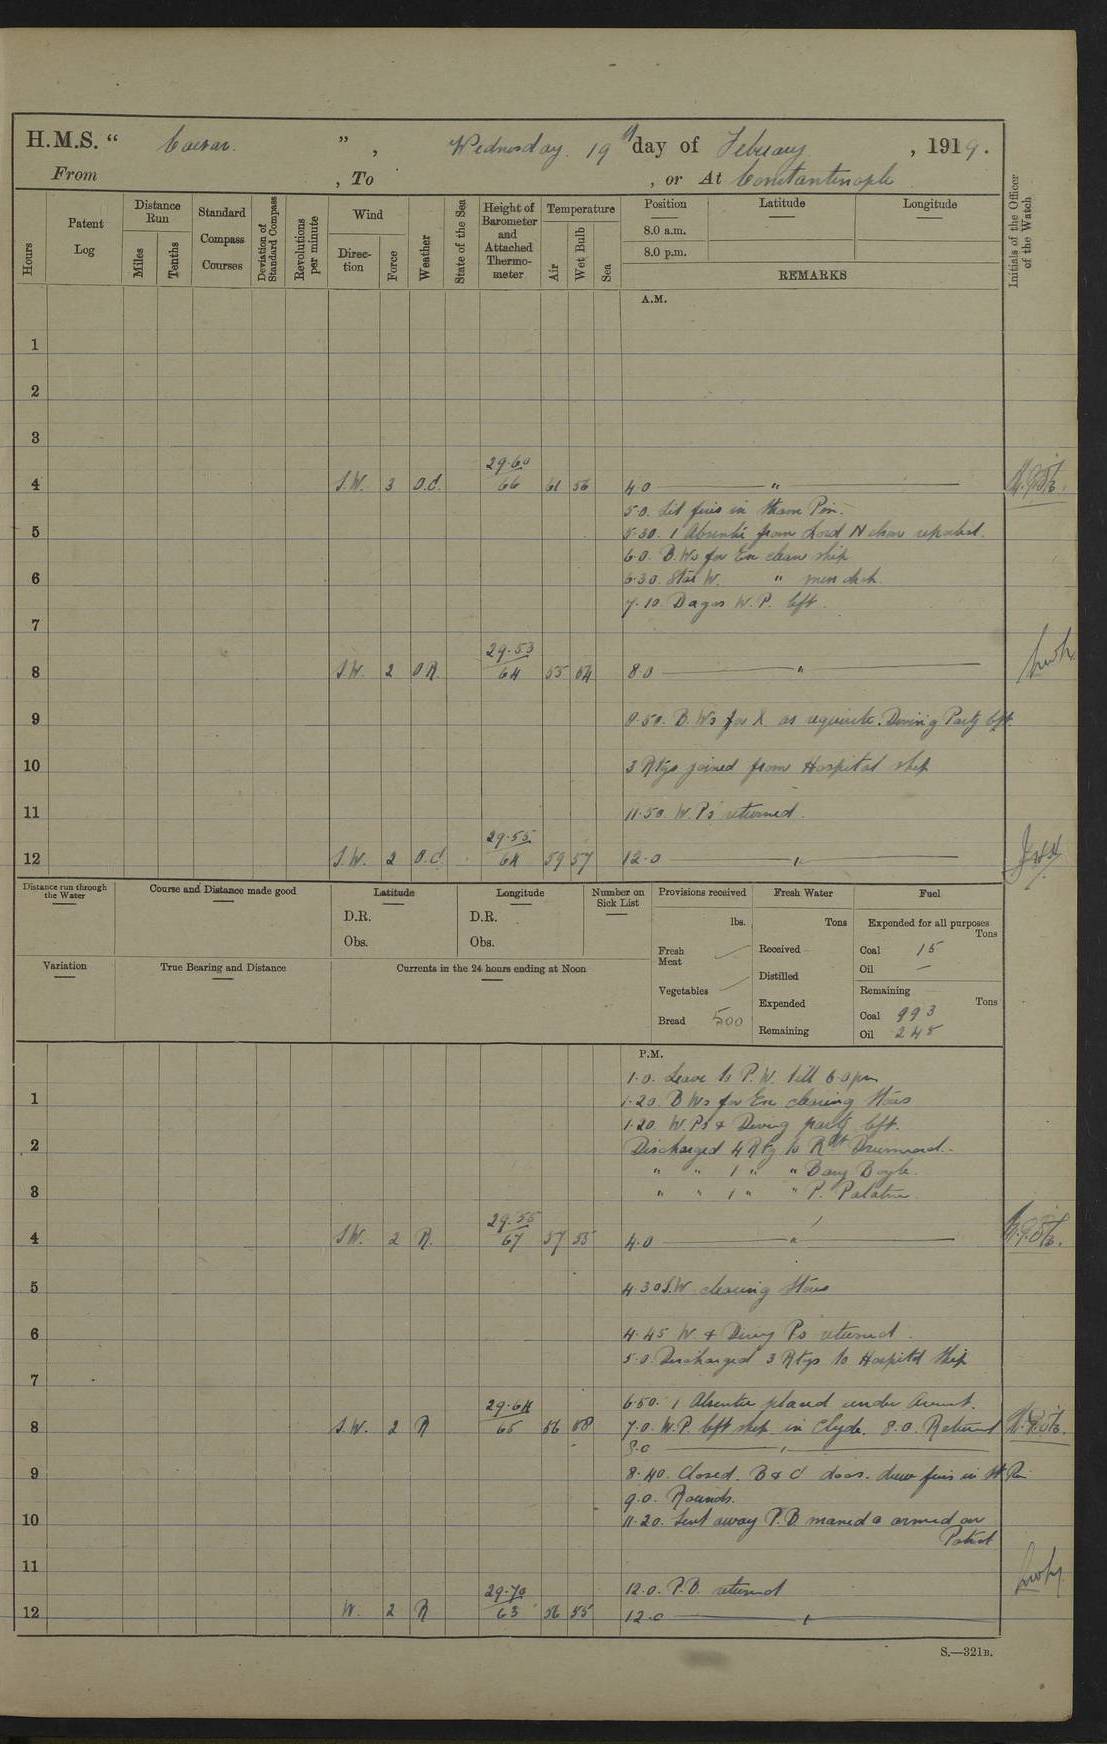 H.M.S. " Caesar. " , Wednesday 19th day of February , 1919.
From , To , or At Constantinople
Hours
Patent Log
Distance Run
Miles
Tenths
Standard Compass Courses
Deviation of Standard Compass
Revolutions per minute
Wind
Direction
Force
Weather
State of the Sea
Height of Barometer and Attached Thermometer
Temperature
Air
Wet Bulb
Sea
Position
8.0 a.m.
8.0 p.m.
Latitude
Longitude
REMARKS
Initials of the Officer of the Watch
A.M.
1
2
3
29.60
4 S.W. 3 O.C. 66 61 56 4.0 "
5.0. Lit fires in Steam Pin.
5 5.30. 1 Absentee from Lord Nelson reported.
6.0. B.Ws for Ex clean ship
6 6.30. " mess deck.
7.10 W.P. left.
7
29.53
8 S.W. 2 O.R. 64 55 54 8.0 "
9 8.50. B.Ws for as requisite. Diving Party left.
10 3 Rtgs joined from Hospital ship
11 11.50 W.Ps returned.
29.55
12 S.W. 2 O.C. 64 59 57 12.0 "
Distance run through the Water
Course and Distance made good
Latitude
D.R.
Obs.
Longitude
D.R.
Obs.
Number on Sick List
Provisions received
lbs.
Fresh Meat
Vegetables
Bread 500
Fresh Water
Tons
Received
Distilled
Expended
Remaining
Fuel
Expended for all purposes
Tons
Coal 15
Oil —
Remaining
Tons
Coal 993
Oil 245
Variation
True Bearing and Distance
Currents in the 24 hours ending at Noon
P.M.
1.0. Leave to P.W. till 6.0 pm
1 1.20. B.Ws for Ex clearing Stores
1.20. W.Ps & Diving party left.
2 Discharged 4 Rtg to
" " 1 " "
3 " " 1 " "
29.55
4 S.W. 2 R. 67 57 55 4.0 "
5 4.30 S.W clearing Stores
6 4.45 W & Diving Ps returned.
5.0. Discharged 3 Rtgs to Hospital Ship
7
6.50. 1 Absentee placed under Arrest.
29.64
8 S.W. 2 R 65 56 7.0. W.P. left ship in Clyde. 8.0. Returned
8.0
9 8.40. Closed B & C doors. drew fires in St Pin
9.0. Rounds.
10 11.20. Sent away P.B. maned & armed on
Patrol
11
29.70
12.0. P.B. returned
12 W. 2 R 63 56 55 12.0
S.—321B.